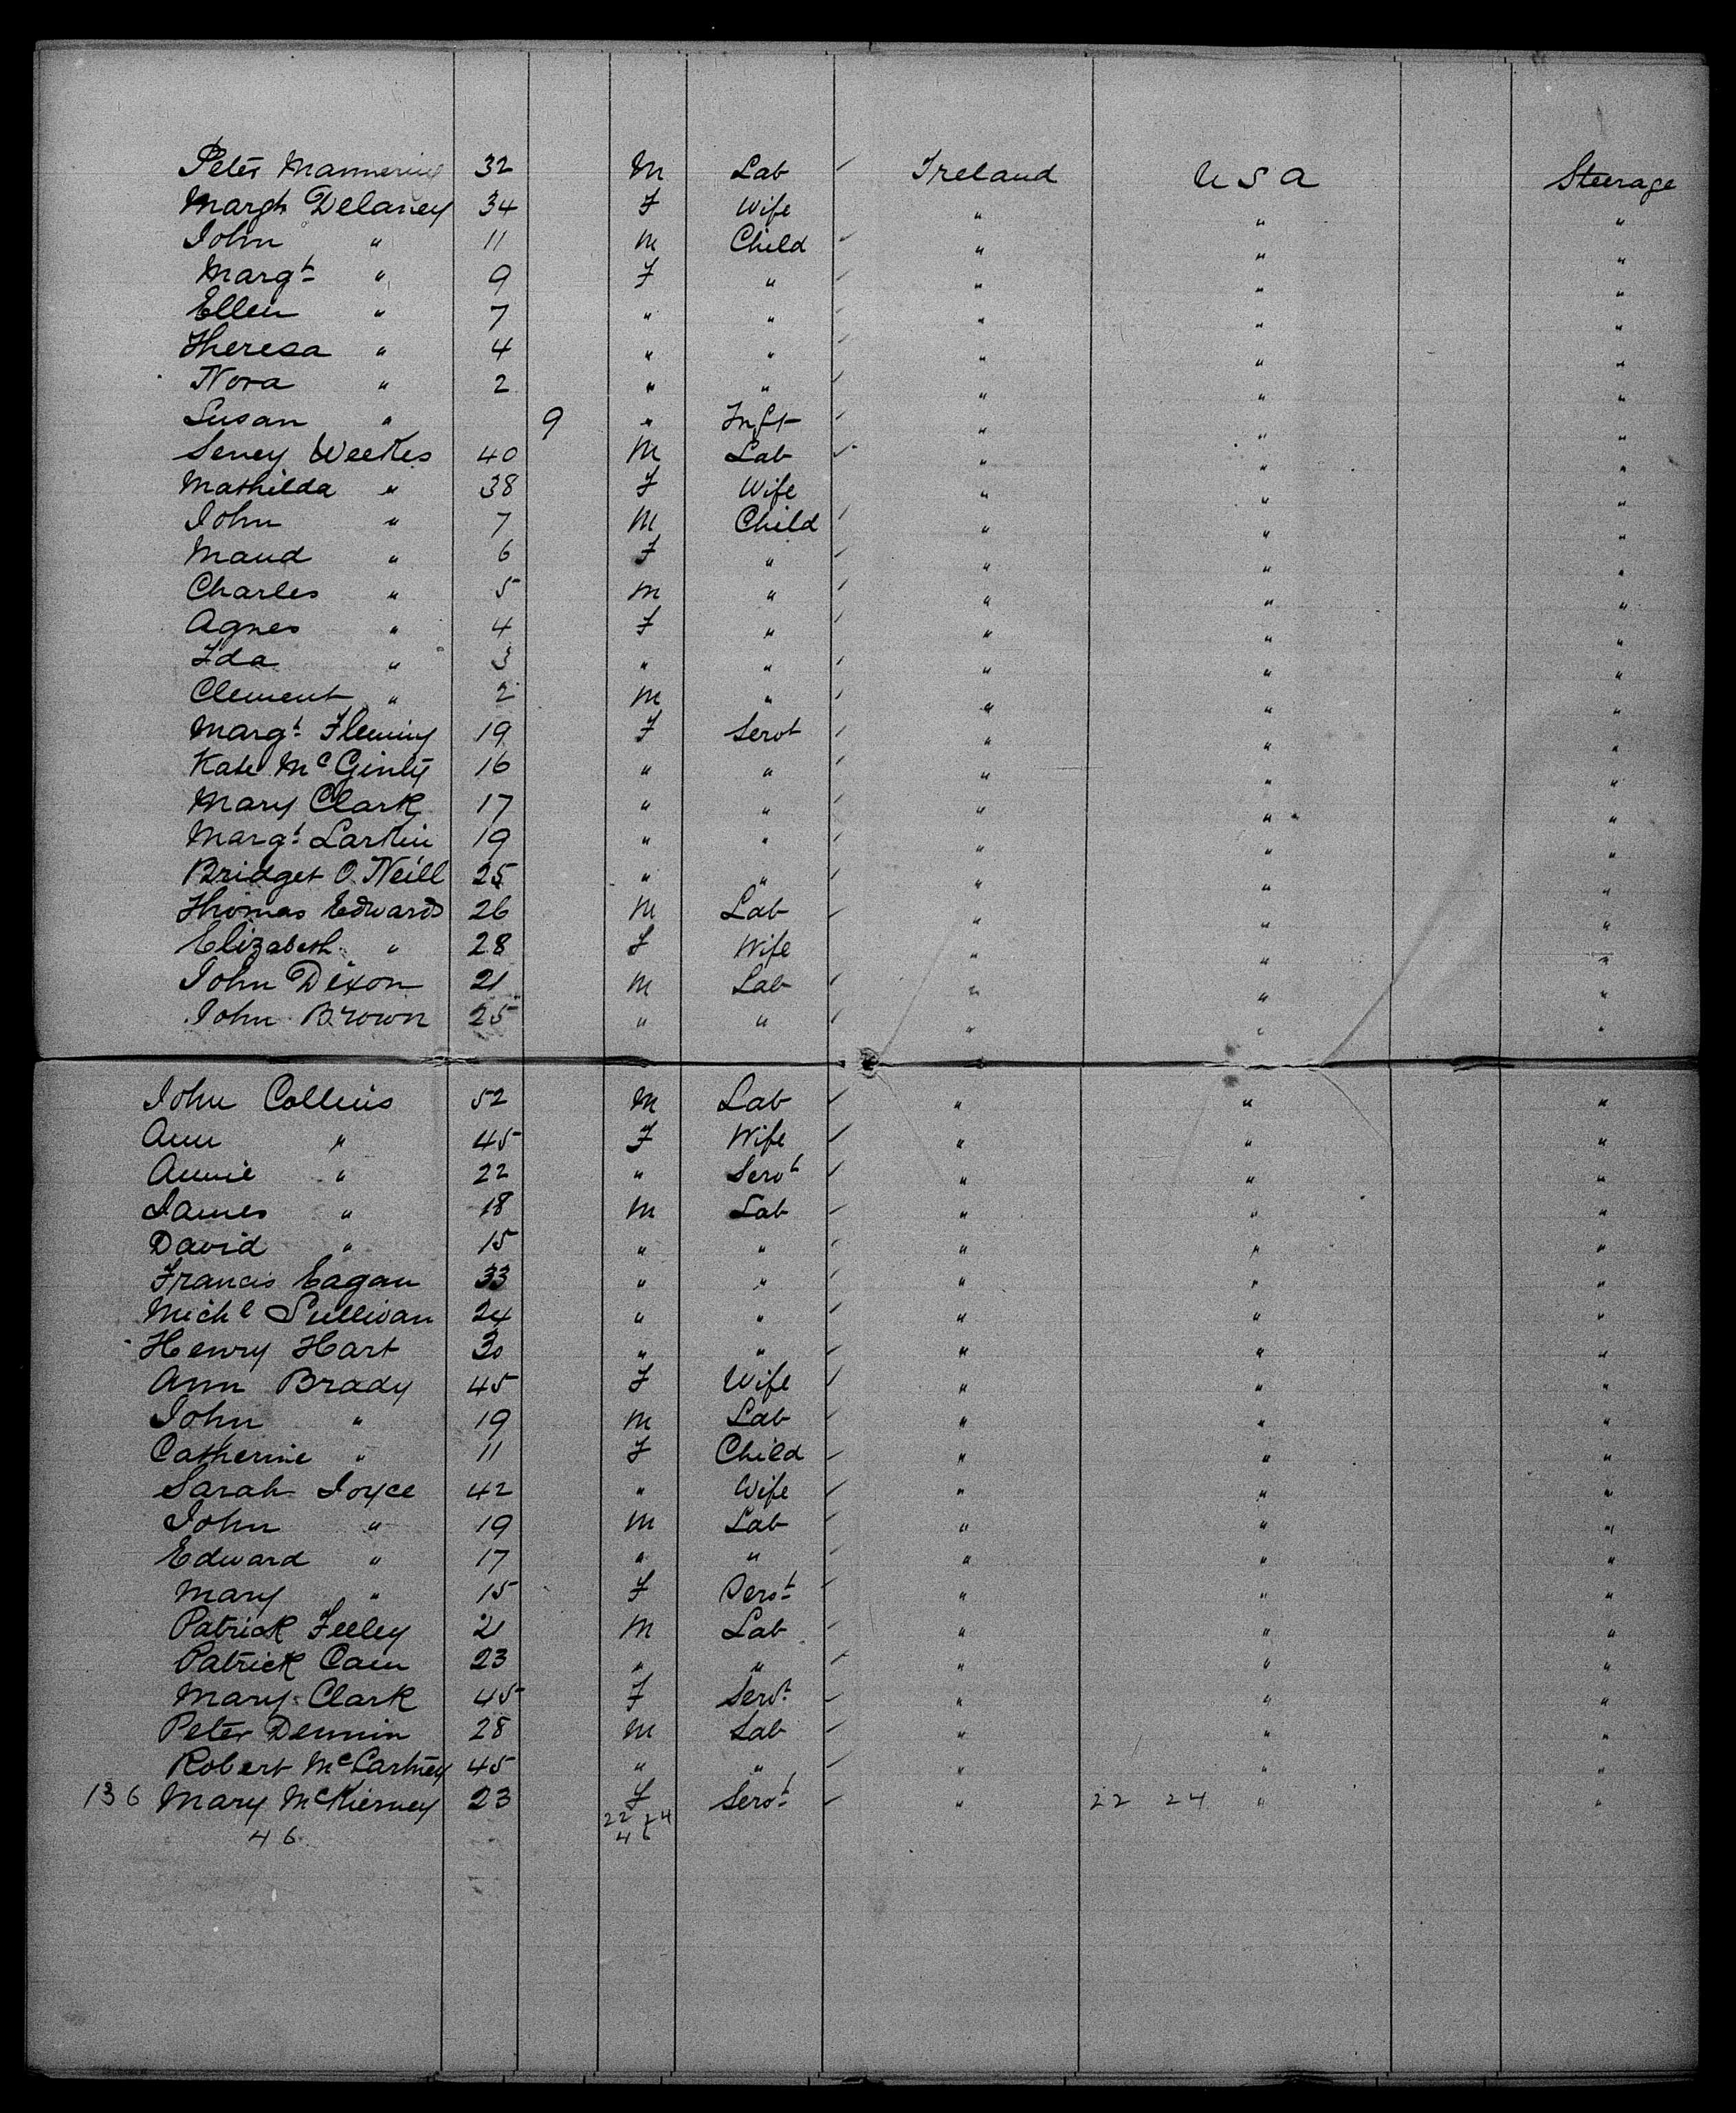 Peter Mannering 32 M Lab Ireland U S A Steerage
Margt Delaney 34 F Wife " " "
John " 11 M Child " " "
Margt " 9 F " " " "
Ellen " 7 " " " " "
Theresa " 4 " " " " "
Nora " 2 " " " " "
Susan " 9 " Inft " " "
Seney Weekes 40 M Lab " " "
Mathilda " 38 F Wife " " "
John " 7 M Child " " "
Maud " 6 F " " " "
Charles " 5 M " " " "
Agnes " 4 F " " " "
Ida " 3 " " " " "
Clement " 2 M " " " "
Margt Fleming 19 F Servt " " "
Kate McGinty 16 " " " " "
Mary Clark 17 " " " " "
Margt Larkin 19 " " " " "
Bridget O.Neill 25 " " " " "
Thomas Edwards 26 M Lab " " "
Elizabeth " 28 F Wife " " "
John Dixon 21 M Lab " " "
John Brown 25 " " " " "
John Collins 52 M Lab " " "
Ann " 45 F Wife " " "
Annie " 22 " Servt " " "
James " 18 M Lab " " "
David " 15 " " " " "
Francis Eagan 33 " " " " "
Michl Sullivan 24 " " " " "
Henry Hart 30 " " " " "
Ann Brady 45 F Wife " " "
John " 19 M Lab " " "
Catherine " 11 F Child " " "
Sarah Joyce 42 " Wife " " "
John " 19 M Lab " " "
Edward " 17 " " " " "
Mary " 15 F Servt " " "
Patrick Feeley 21 M Lab " " "
Patrick Cain 23 " " " " "
Mary Clark 45 F Servt " " "
Peter Dennin 28 M Lab " " "
Robert McCartney 45 " " " " "
136 Mary McKierney 23 F Servt " 22 24 " "
22 24
46 46